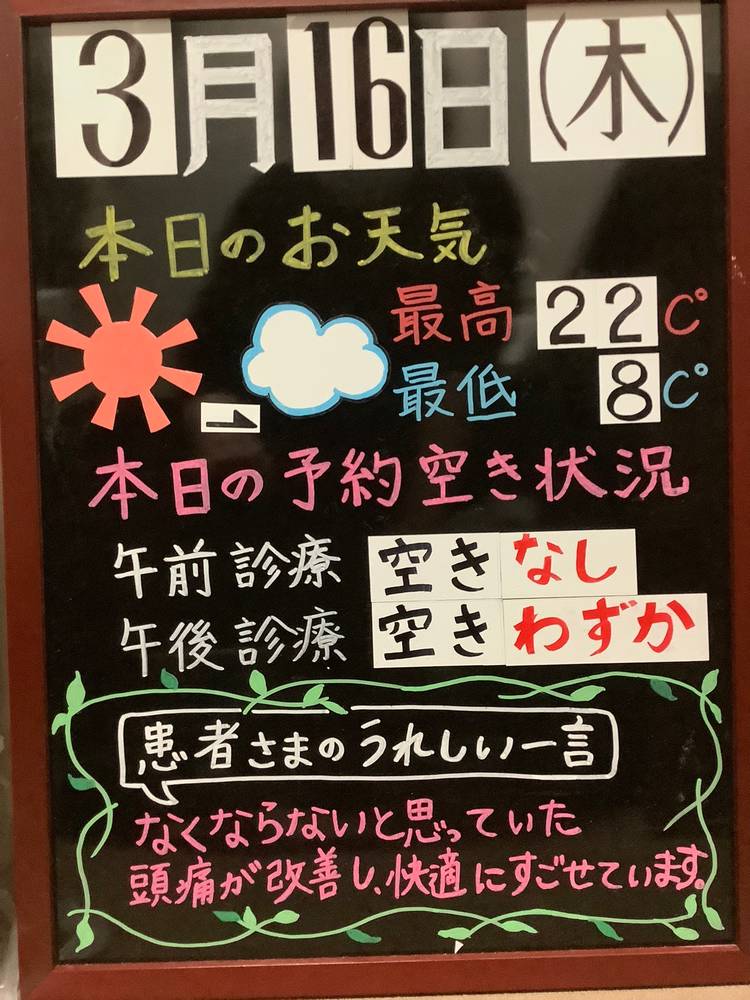 3月16日(木)
本日のお天気
最高 22C°
1
最低 8C°
本日の予約空き状況
午前診療 空きなし
午後診療 空きわずか
患者さまのうれしい一言
なくならないと思っていた
頭痛が改善し、快適にすごせています。